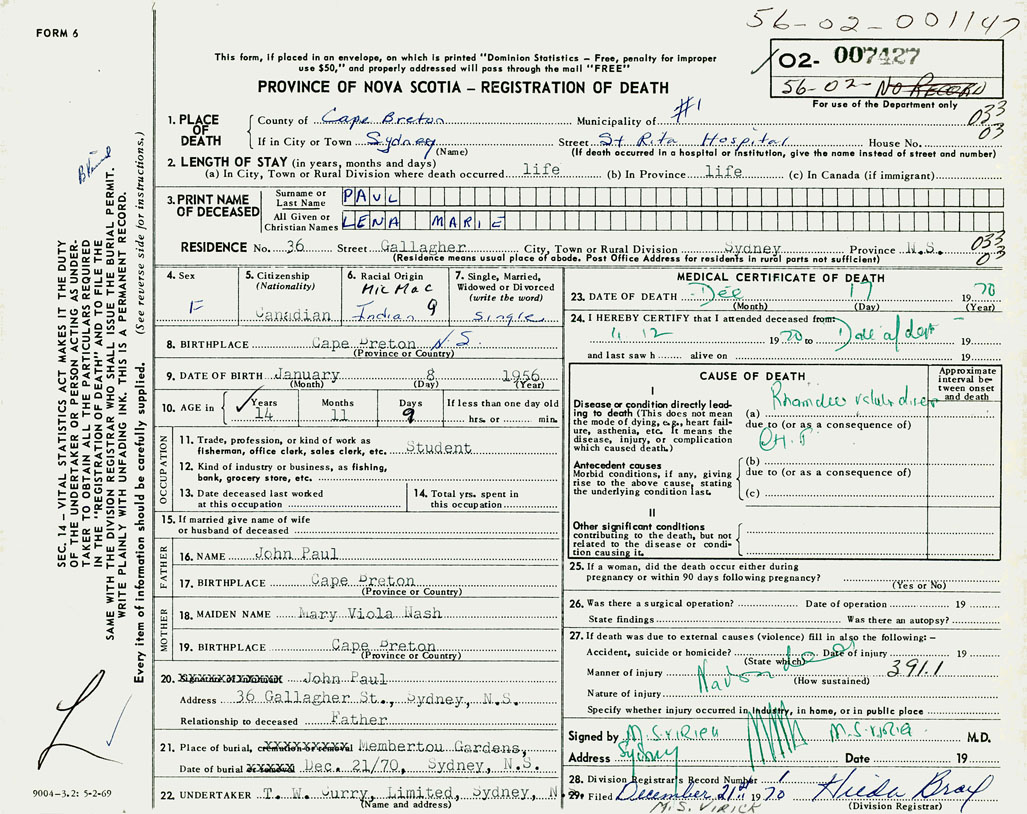 56-02-001147
FORM 6
This form, if placed in an envelope, on which is printed "Dominion Statistics – Free, penalty for improper
use $50," and properly addressed will pass through the mail "FREE"
PROVINCE OF NOVA SCOTIA – REGISTRATION OF DEATH
02- 007427
56-02- NO RECORD
For use of the Department only
#1
033
03
1. PLACE OF DEATH
County of Cape Breton Municipality of
If in City or Town Sydney Street St Rita Hospital House No.
(Name) (If death occurred in a hospital or institution, give the name instead of street and number)
2. LENGTH OF STAY (in years, months and days)
(a) In City, Town or Rural Division where death occurred life (b) In Province life (c) In Canada (if immigrant)
3. PRINT NAME OF DECEASED
Surname or Last Name PAUL
All Given or Christian Names LENA MARIE
RESIDENCE No. 36 Street Gallagher City, Town or Rural Division Sydney Province N.S.
033
03
(Residence means usual place of abode. Post Office Address for residents in rural parts not sufficient)
4. Sex
F
5. Citizenship
(Nationality)
Canadian
6. Racial Origin
Mic Mac
Indian 9
7. Single, Married,
Widowed or Divorced
(write the word)
Single
8. BIRTHPLACE Cape Breton N.S.
(Province or Country)
9. DATE OF BIRTH January 8 1956
(Month) (Day) (Year)
10. AGE in Years Months Days If less than one day old
14 11 9 hrs. or min.
OCCUPATION
11. Trade, profession, or kind of work as
fisherman, office clerk, sales clerk, etc. Student
12. Kind of industry or business, as fishing,
bank, grocery store, etc.
13. Date deceased last worked
at this occupation
14. Total yrs. spent in
this occupation
15. If married give name of wife
or husband of deceased
FATHER
16. NAME John Paul
17. BIRTHPLACE Cape Breton
(Province or Country)
MOTHER
18. MAIDEN NAME Mary Viola Nash
19. BIRTHPLACE Cape Breton
(Province or Country)
20. John Paul
Address 36 Gallagher St., Sydney, N.S.
Relationship to deceased Father
21. Place of burial, cremation or removal Membertou Gardens,
Date of burial Dec. 21/70, Sydney, N.S.
22. UNDERTAKER T. W. Curry, Limited, Sydney, N.
(Name and address)
MEDICAL CERTIFICATE OF DEATH
23. DATE OF DEATH Dec 17 1970
(Month) (Day) (Year)
24. I HEREBY CERTIFY that I attended deceased from:
12 1970 to Date of dept 19
and last saw h alive on 19
CAUSE OF DEATH
Approximate
interval be-
tween onset
and death
I
Disease or condition directly lead-
ing to death (This does not mean
the mode of dying, e.g., heart fail-
ure, asthenia, etc. It means the
disease, injury, or complication
which caused death.)
(a)
due to (or as a consequence of)
Antecedent causes
Morbid conditions, if any, giving
rise to the above cause, stating
the underlying condition last.
(b)
due to (or as a consequence of)
(c)
II
Other significant conditions
contributing to the death, but not
related to the disease or condi-
tion causing it.
25. If a woman, did the death occur either during
pregnancy or within 90 days following pregnancy?
(Yes or No)
26. Was there a surgical operation? Date of operation 19
State findings Was there an autopsy?
27. If death was due to external causes (violence) fill in also the following: –
Accident, suicide or homicide? Date of injury 19
(State which)
Manner of injury 391.1
(How sustained)
Nature of injury
Specify whether injury occurred in industry, in home, or in public place
Signed by M.D.
Address Sydney Date 19
28. Division Registrar's Record Number 1
29. Filed December 21st 1970 Hilda Bray
M.S. VIRICK (Division Registrar)
SEC. 14 – VITAL STATISTICS ACT MAKES IT THE DUTY
OF THE UNDERTAKER OR PERSON ACTING AS UNDER-
TAKER TO OBTAIN ALL THE PARTICULARS REQUIRED
IN THE "REGISTRATION OF DEATH" AND TO FILE THE
SAME WITH THE DIVISION REGISTRAR WHO SHALL ISSUE THE BURIAL PERMIT.
WRITE PLAINLY WITH UNFADING INK. THIS IS A PERMANENT RECORD.
Every item of information should be carefully supplied. (See reverse side for instructions.)
9004-3.2: 5-2-69